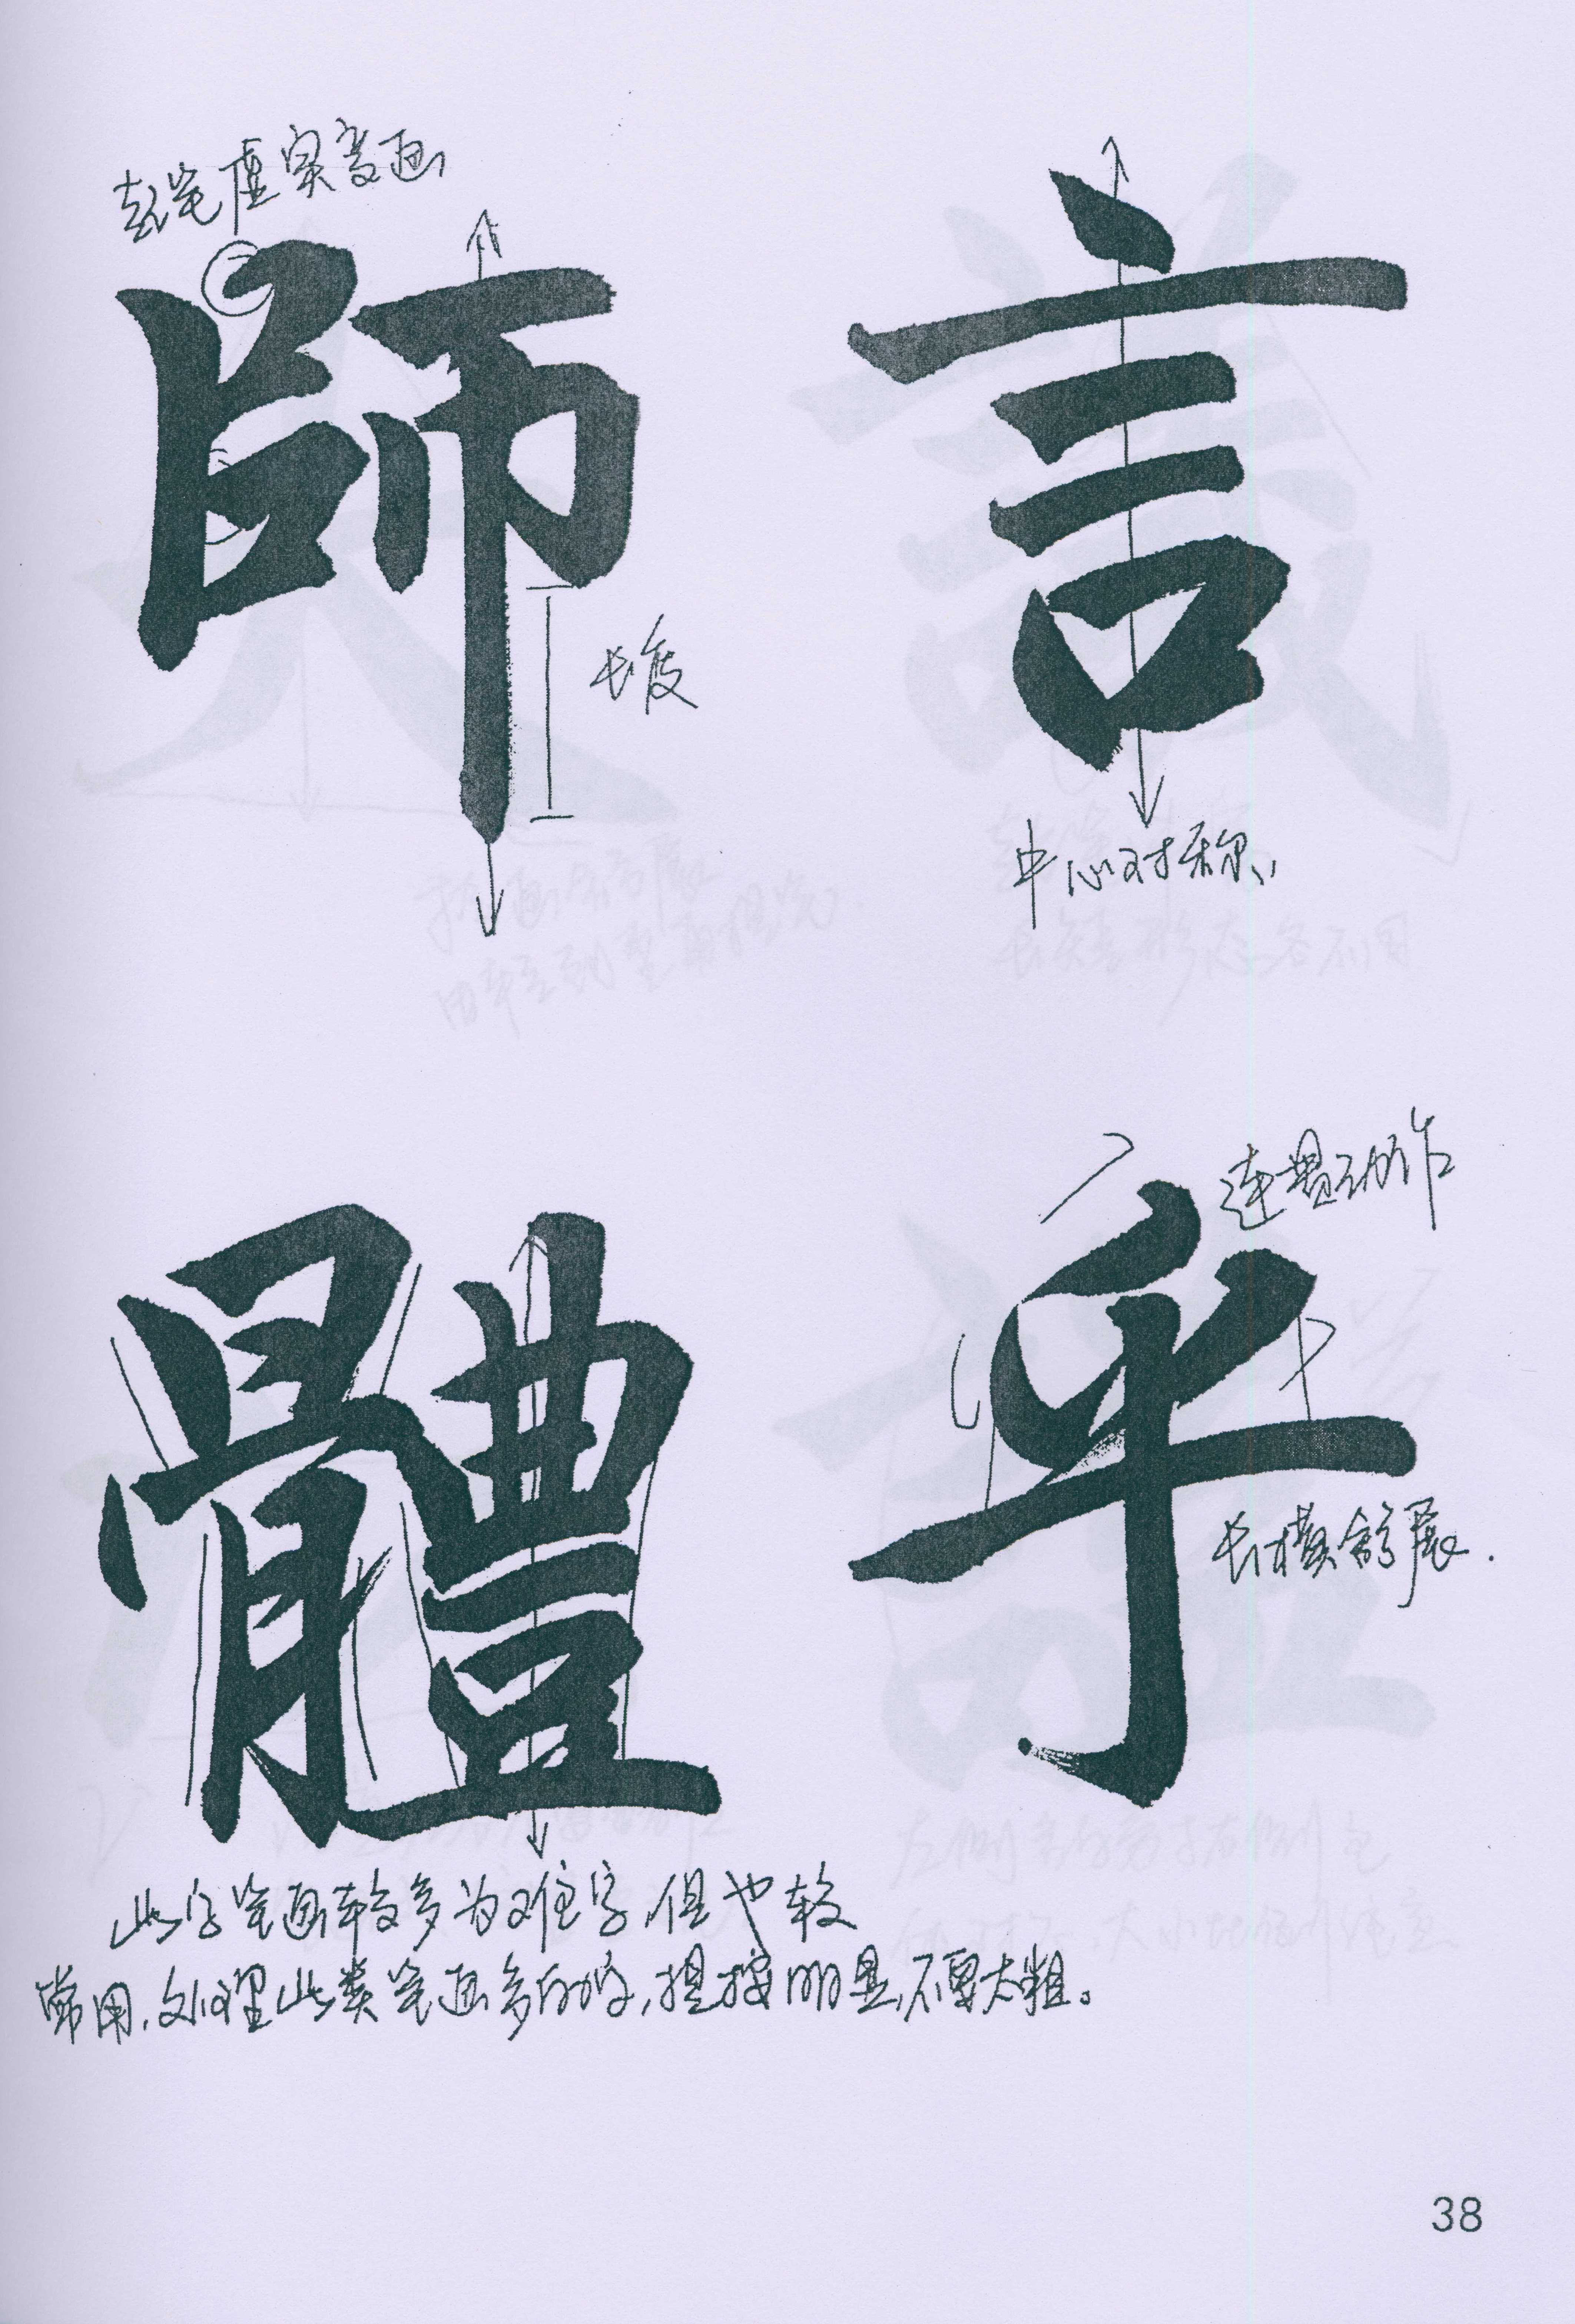 起笔虚实变画
師
长度
言
中心对称
體
此字笔画较多为难字,但也较
常用,处理此类笔画多的字,提按明显,不要太粗。
乎
连贯动作
长横舒展.
38